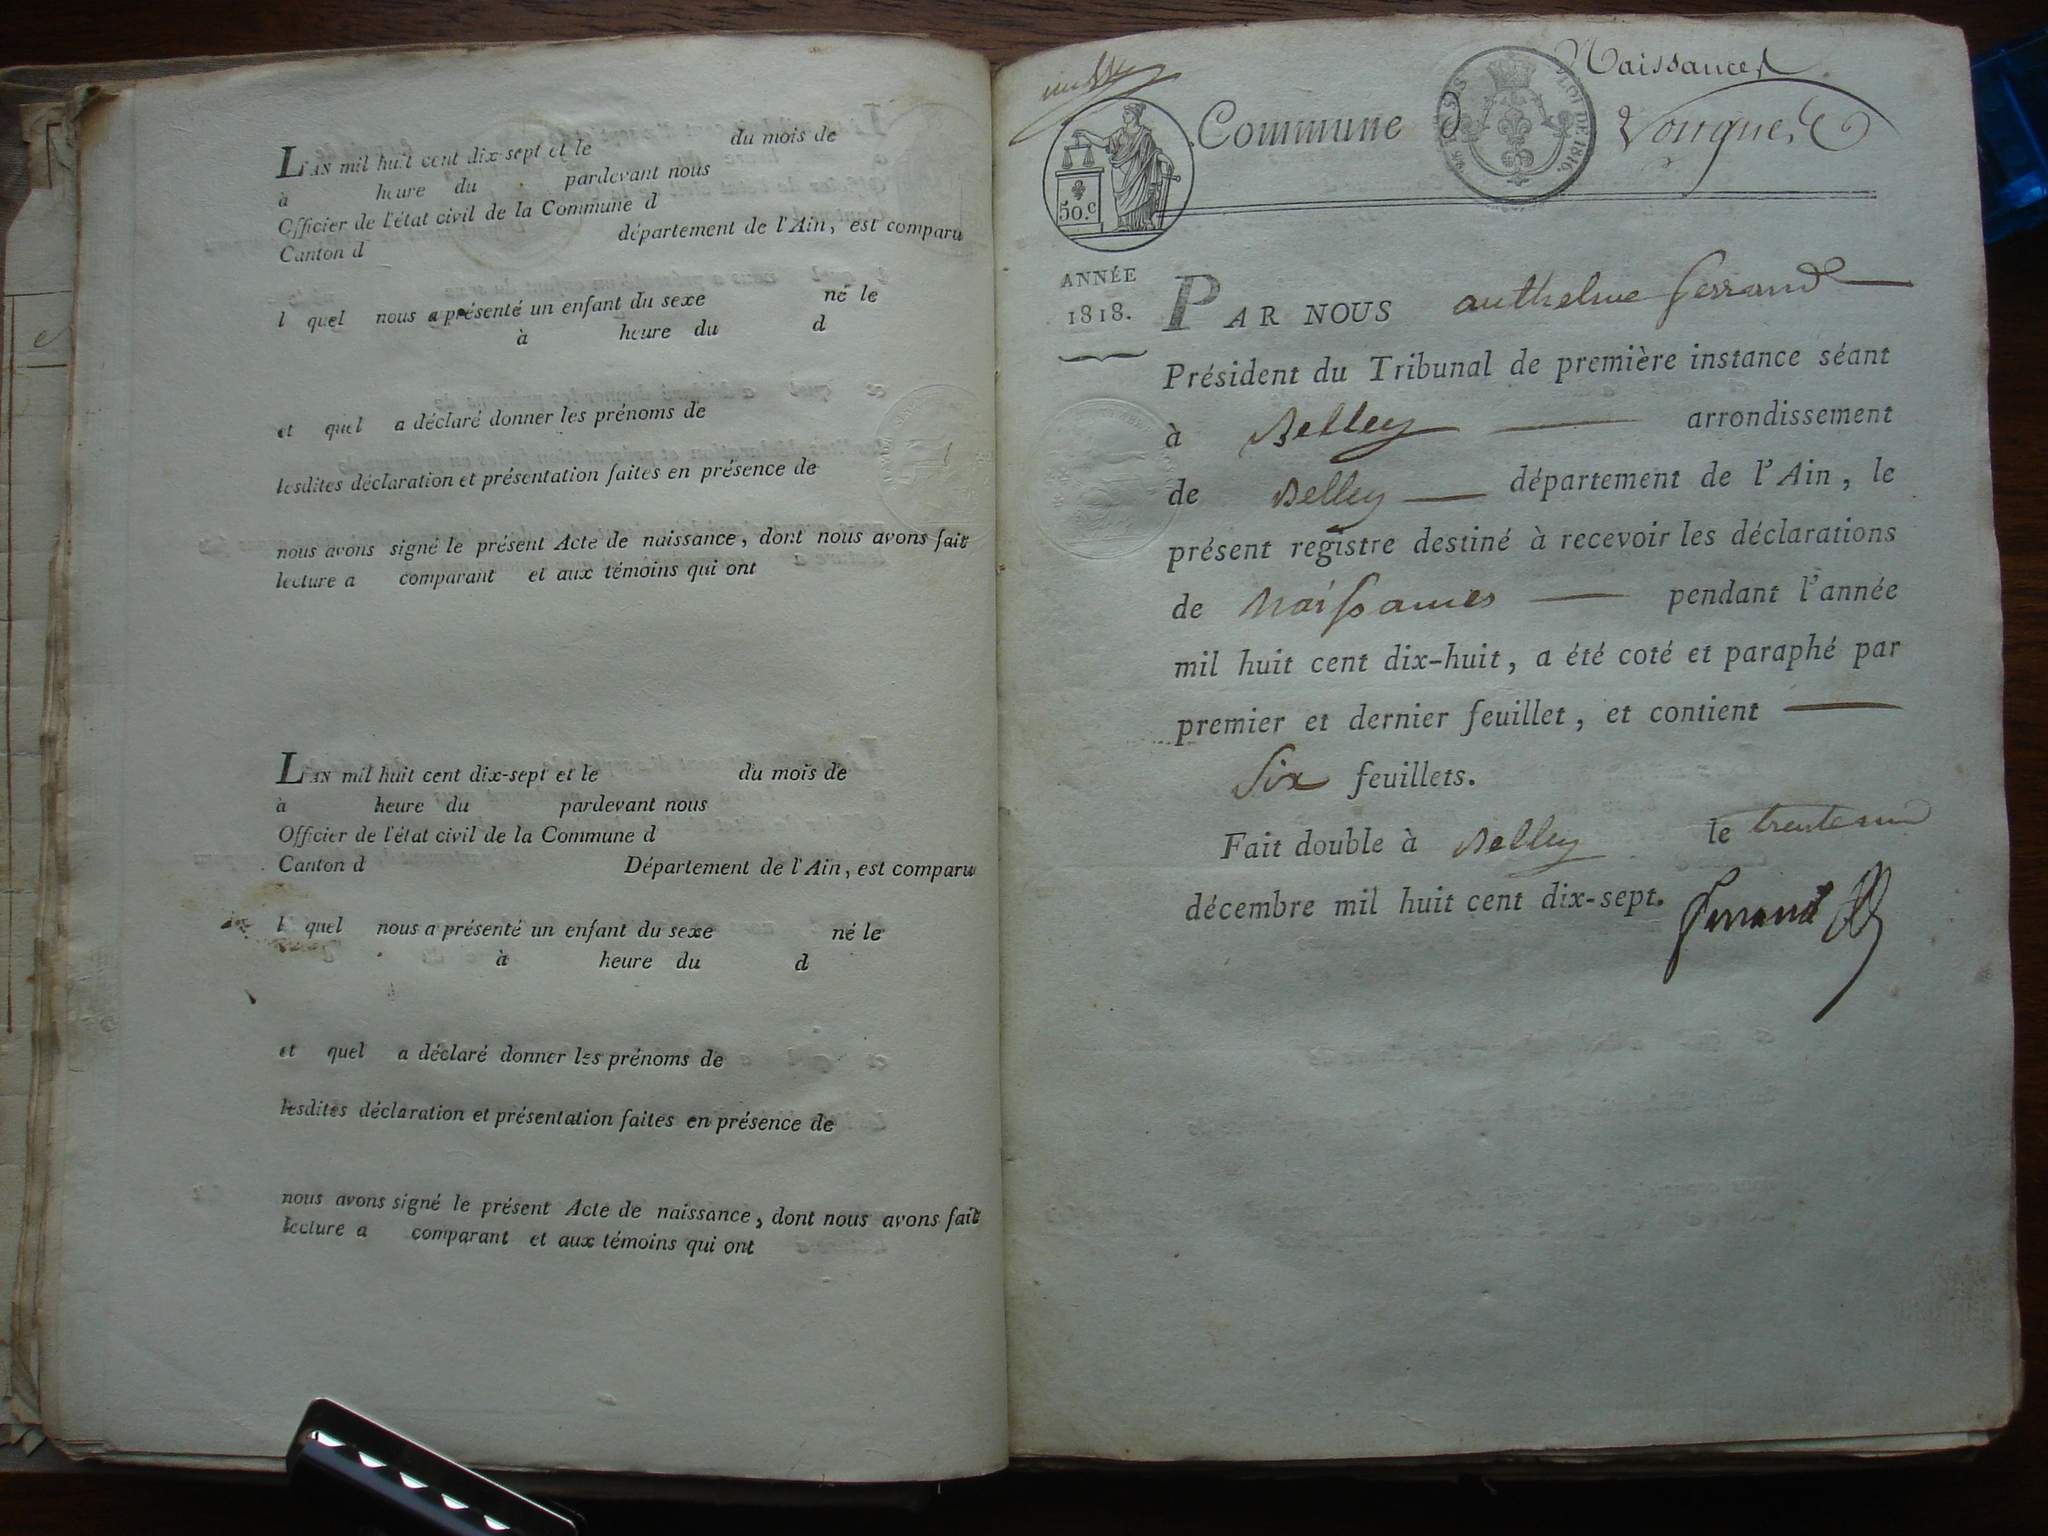 L'AN mil huit cent dix-sept et le du mois de
à heure du pardevant nous
Officier de l'état civil de la Commune d
Canton d département de l'Ain, est comparu
l quel nous a présenté un enfant du sexe né le
à heure du d
et quel a déclaré donner les prénoms de
lesdites déclaration et présentation faites en présence de
nous avons signé le présent Acte de naissance, dont nous avons fait
lecture a comparant et aux témoins qui ont
L'AN mil huit cent dix-sept et le du mois de
à heure du pardevant nous
Officier de l'état civil de la Commune d
Canton d Département de l'Ain, est comparu
l quel nous a présenté un enfant du sexe né le
à heure du d
et quel a déclaré donner les prénoms de
lesdites déclaration et présentation faites en présence de
nous avons signé le présent Acte de naissance, dont nous avons fait
lecture a comparant et aux témoins qui ont
Naissances
Commune d
LOI DE 1816
50.c
ANNÉE
1818.
PAR NOUS anthelme ferrand
Président du Tribunal de première instance séant
à Belley arrondissement
de Belley département de l'Ain, le
présent registre destiné à recevoir les déclarations
de Naissances pendant l'année
mil huit cent dix-huit, a été coté et paraphé par
premier et dernier feuillet, et contient
Six feuillets.
Fait double à Belley le trente un
décembre mil huit cent dix-sept.
ferrand